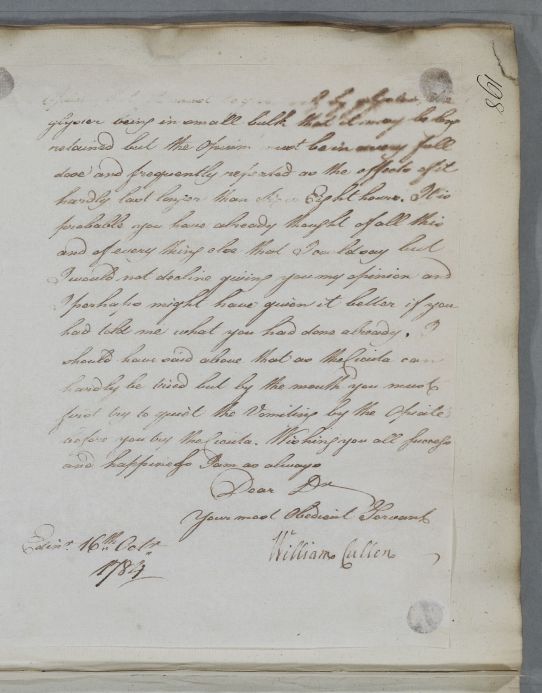 198
by glyster the
glyster being in small bulk that it may be long
retained but the Opium must be in every full
dose and frequently repeted as the effects of it
hardly last longer than Eight hours. It is
probable you have already thought of all this
and of every thing else that I could say but
I would not decline giving you my opinion and
I perhaps might have given it better if you
had told me what you had done already. I
should have said above that as the Cicuta can
hardly be used but by the mouth you must
first try to quiet the Vomiting by the Opiate
before you try the Cicuta. Wishing you all success
and happiness I am as always
Dear Dr
Your most Obedient Servant
Edinr. 16th. Octr. William Cullen
1784